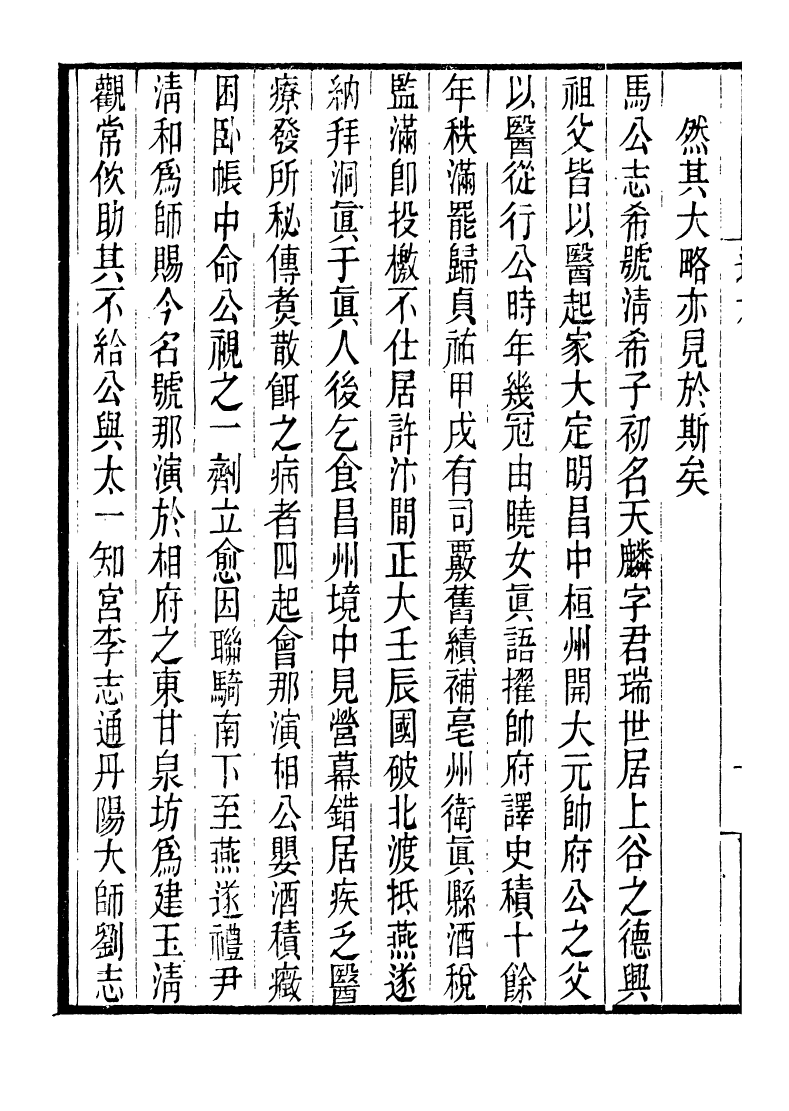 然其大略亦見於斯矣
馬公志希號清希子初名天麟字君瑞世居上谷之德興
祖父皆以醫起家大定明昌中桓州開大元帥府公之父
以醫從行公時年幾冠由曉女眞語擢帥府譯史積十餘
年秩滿罷歸貞祐甲戌有司覈舊績補亳州衛眞縣酒稅
監滿卽投檄不仕居許汴間正大壬辰國破北渡抵燕遂
納拜洞眞于眞人後乞食昌州境中見營幕錯居疾乏醫
療發所秘傳煑散餌之病者四起會那演相公嬰酒積癥
困卧帳中命公視之一劑立愈因聯騎南下至燕遂禮尹
清和爲師賜今名號那演於相府之東甘泉坊爲建玉清
觀常佽助其不給公與太一知宮李志通丹陽大師劉志